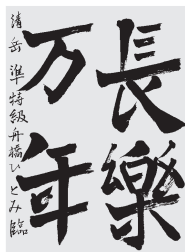 長樂
万年
清岳 準特級 舟橋ひとみ臨